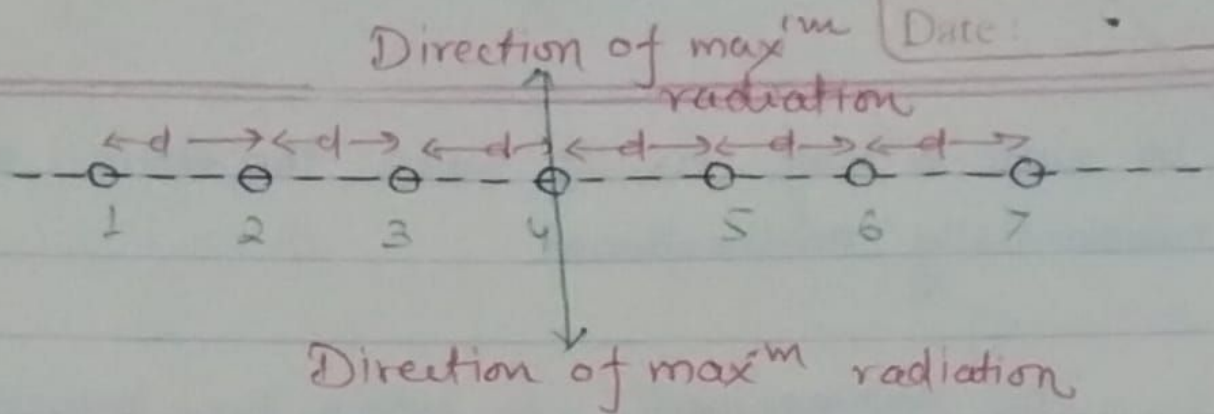 Date:
Direction of max'm
radiation
d d d d d d
1 2 3 4 5 6 7
Direction of max^m radiation